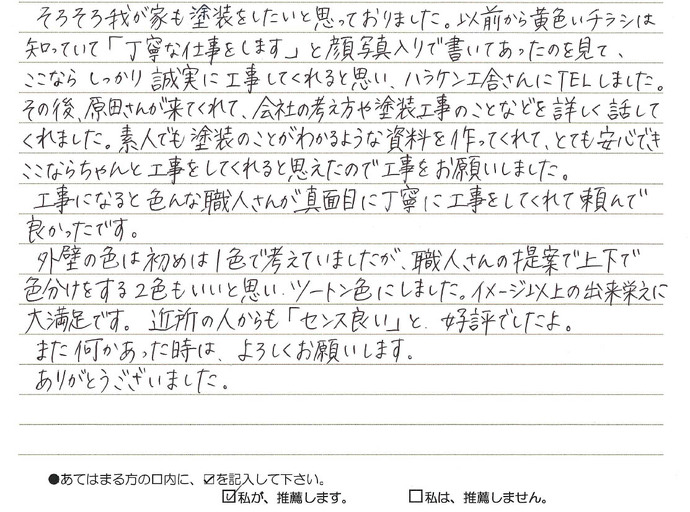 そろそろ我が家も塗装をしたいと思っておりました。以前から黄色いチラシは
知っていて「丁寧な仕事をします」と顔写真入りで書いてあったのを見て、
ここなら しっかり 誠実に工事してくれると思い、ハラケン工舎さんにTELしました。
その後、原田さんが来てくれて、会社の考え方や塗装工事のことなどを詳しく話して
くれました。素人でも塗装のことがわかるような資料を作ってくれて、とても安心でき
ここならちゃんと工事をしてくれると思えたので工事をお願いしました。
工事になると色んな職人さんが真面目に丁寧に工事をしてくれて頼んで
良かったです。
外壁の色は初めは1色で考えていましたが、職人さんの提案で上下で
色分けをする2色もいいと思い、ツートン色にしました。イメージ以上の出来栄えに
大満足です。近所の人からも「センス良い」と、好評でしたよ。
また何かあった時は、よろしくお願いします。
ありがとうございました。
●あてはまる方の口内に、☑を記入して下さい。
☑私が、推薦します。 □私は、推薦しません。